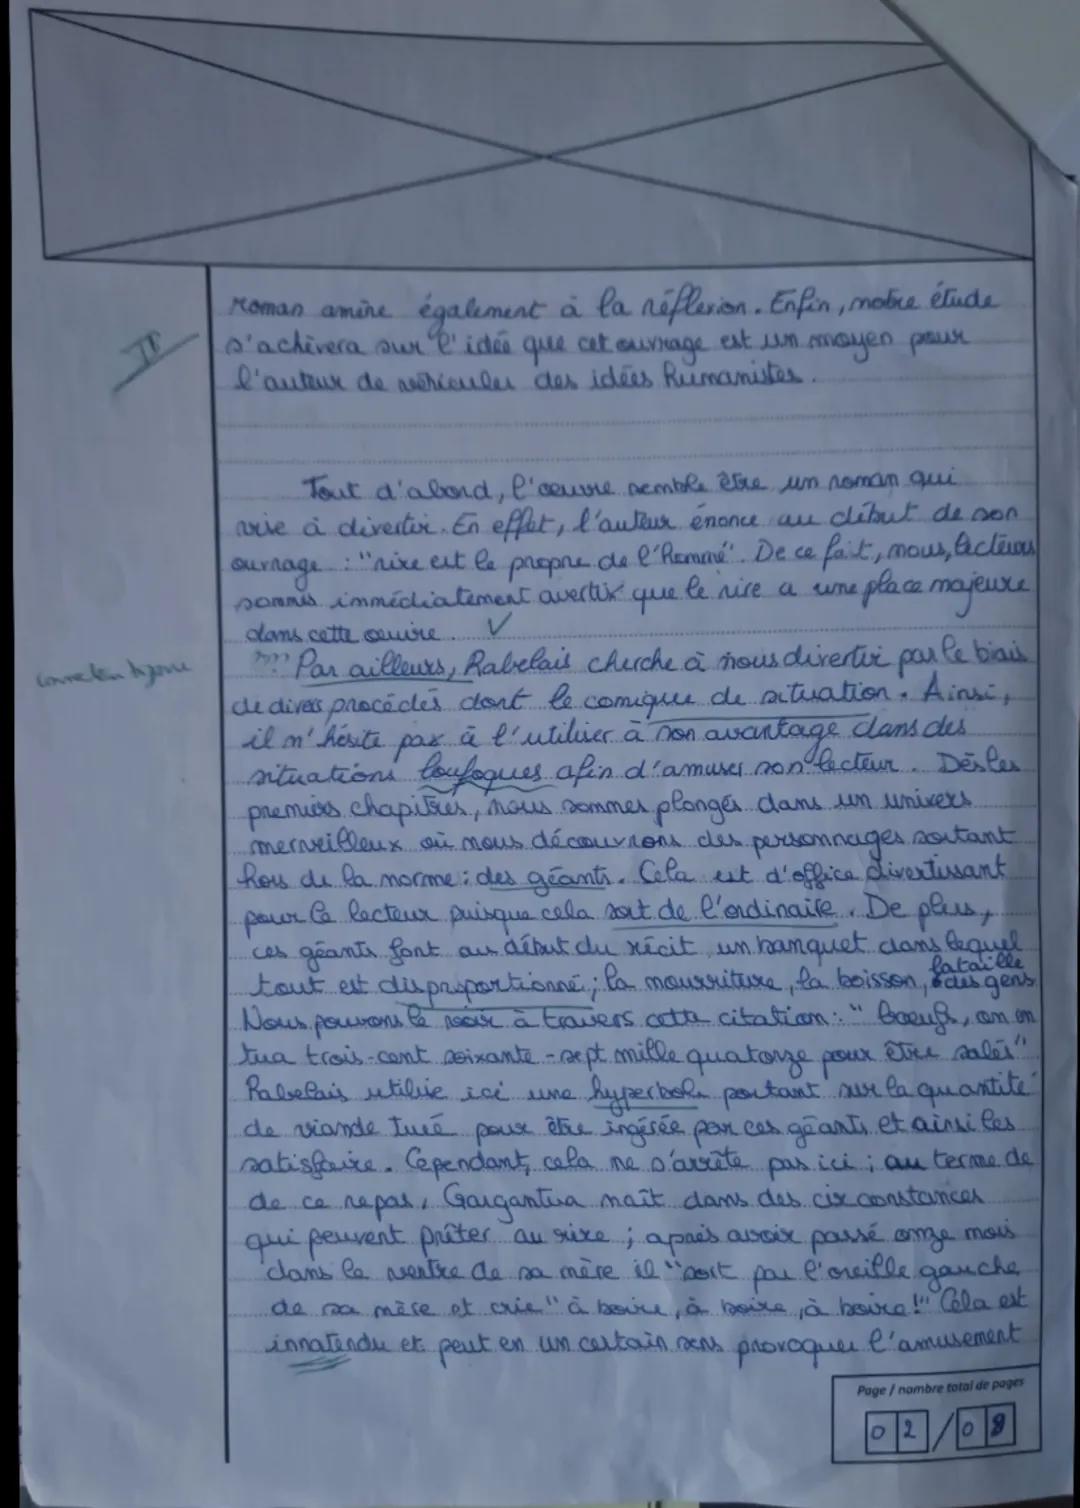 roman amène également à la réflexion. Enfin, notre étude
s'achèvera sur l'idée que cet ouvrage est un moyen pour
l'auteur de véhiculer des idées humanistes.
Tout d'abord, l'oeuvre semble être un roman qui
vise à divertir. En effet, l'auteur énonce au début de son
ouvrage : "rire est le propre de l'Homme". De ce fait, nous, lecteurs
sommes immédiatement avertix que le rire a une place majeure
dans cette oeuvre.
??? Par ailleurs, Rabelais cherche à nous divertir par le biais
de divers procédés dont le comique de situation. Ainsi,
il n'hésite pas à l'utiliser à son avantage dans des
situations loufoques afin d'amuser son lecteur. Dès les
premiers chapitres, nous sommes plongés dans un univers
merveilleux où nous découvrons des personnages sortant
hors de la norme : des géants. Cela est d'office divertissant
pour le lecteur puisque cela sort de l'ordinaire. De plus,
ces géants font au début du récit un banquet dans lequel
tout est disproportionné ; la nourriture, la boisson, la taille des gens
Nous pouvons le voir à travers cette citation : " boeufs, on en
tua trois-cent soixante-sept mille quatorze pour être salés"
Rabelais utilise ici une hyperbole portant sur la quantité
de viande tuée pour être ingérée par ces géants et ainsi les
satisfaire. Cependant, cela ne s'arrête pas ici ; au terme de
de ce repas, Gargantua naît dans des circonstances
qui peuvent prêter au rire ; après avoir passé onze mois
dans le ventre de sa mère il "sort par l'oreille gauche
de sa mère et crie "à boire, à boire, à boire !" Cela est
innatendu et peut en un certain sens provoquer l'amusement
Page / nombre total de pages
02/08